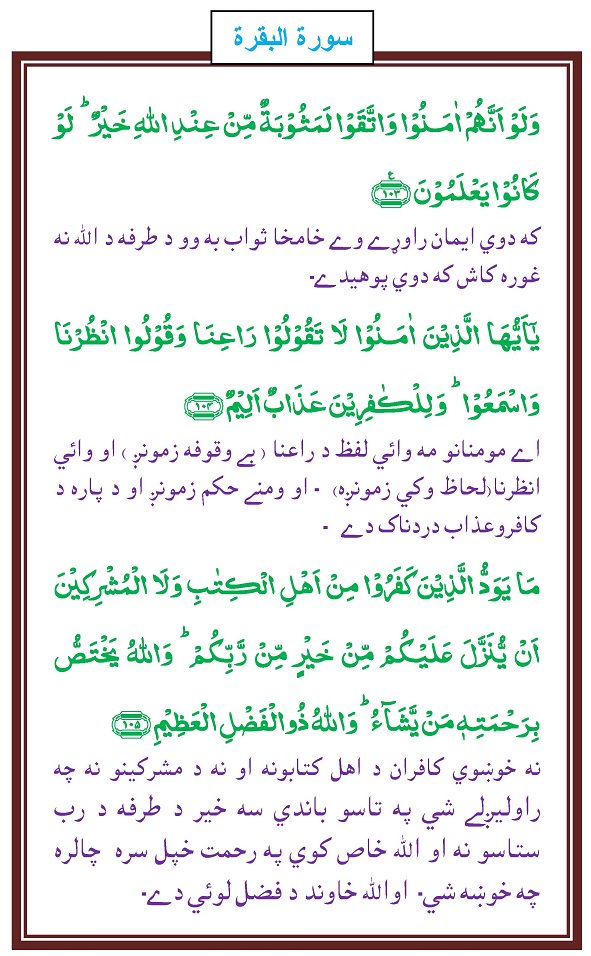 سورة البقرة
وَلَوْ اَنَّهُمْ اٰمَنُوْا وَاتَّقَوْا لَمَثُوْبَةٌ مِّنْ عِنْدِ اللهِ خَيْرٌ ؕ لَوْ
كَانُوْا يَعْلَمُوْنَ ﴿۱۰۳﴾ ع
که دوي ايمان راوړے وے خامخا ثواب به وو د طرفه د الله نه
غوره کاش که دوي پوهيدے۔
يٰۤاَيُّهَا الَّذِيْنَ اٰمَنُوْا لَا تَقُوْلُوْا رَاعِنَا وَقُوْلُوا انْظُرْنَا
وَاسْمَعُوْا ؕ وَلِلْكٰفِرِيْنَ عَذَابٌ اَلِيْمٌ ﴿۱۰۳﴾
اے مومنانو مه وائي لفظ د راعنا ( بے وقوفه زمونږ ) او وائي
انظرنا(لحاظ وکي زمونږه) ۔ او ومنے حکم زمونږ او د پاره د
کافروعذاب دردناک دے ۔
مَا يَوَدُّ الَّذِيْنَ كَفَرُوْا مِنْ اَهْلِ الْكِتٰبِ وَلَا الْمُشْرِكِيْنَ
اَنْ يُّنَزَّلَ عَلَيْكُمْ مِّنْ خَيْرٍ مِّنْ رَّبِّكُمْ ؕ وَاللهُ يَخْتَصُّ
بِرَحْمَتِهٖ مَنْ يَّشَآءُ ؕ وَاللهُ ذُو الْفَضْلِ الْعَظِيْمِ ﴿۱۰۵﴾
نه خوښوي کافران د اهل کتابونه او نه د مشرکينو نه چه
راوليږلے شي په تاسو باندي سه خير د طرفه د رب
ستاسو نه او الله خاص کوي په رحمت خپل سره چالره
چه خوښه شي۔ اوالله خاوند د فضل لوئي دے۔